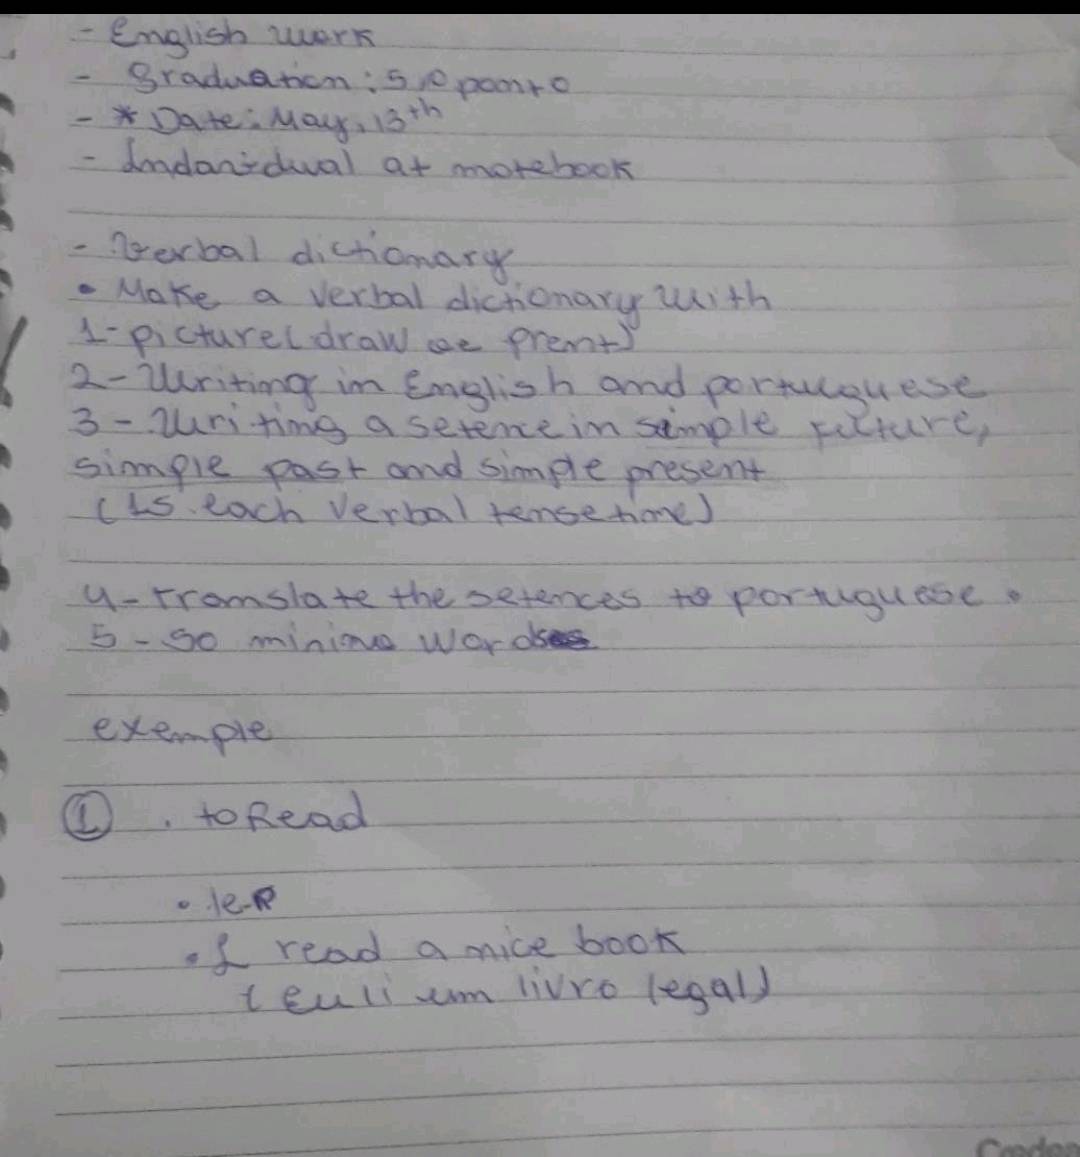 - English work
- Graduation: 5,0 ponto
- * Date: May, 13th
- Indanidual at notebook
- Verbal dictionary
• Make a verbal dictionary with
1- picture (draw oe prent)
2- Writing in English and portuguese
3 - Writing a setence in simple future,
simple past and simple present
(15 each verbal tense time)
4- translate the setences to portuguese.
5 - 50 minimo words
exemple
① . to Read
• leR
• I read a nice book
(Eu li um livro legal)